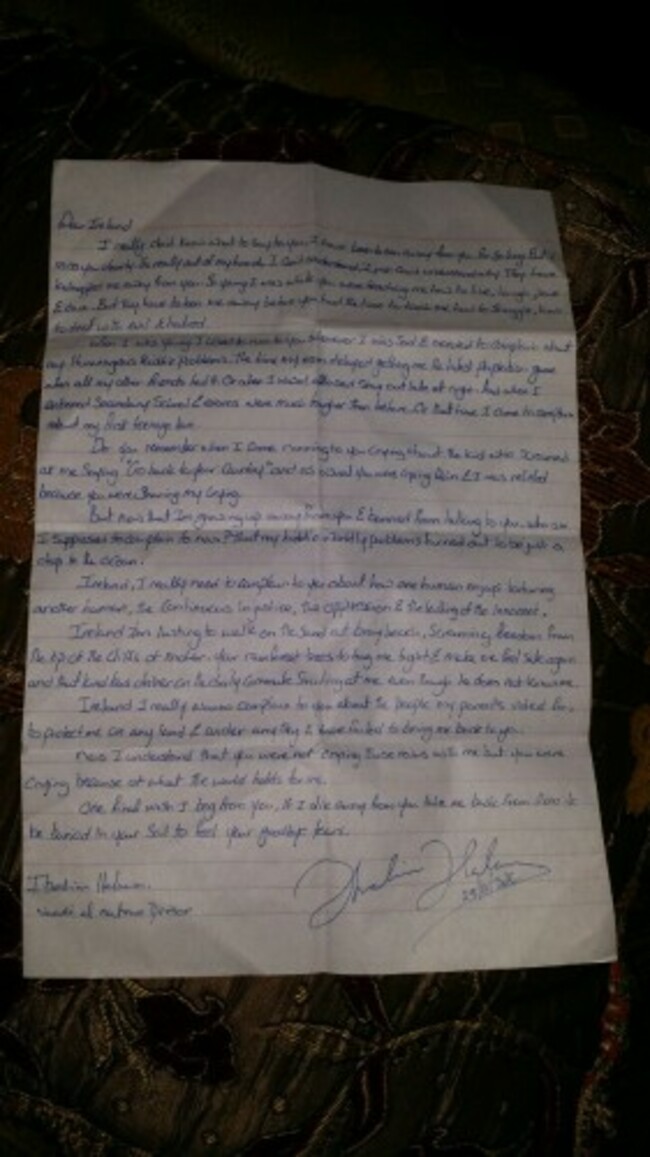 Dear Ireland
I really dont know what to say to you, I have been taken away from you for so long. But I
miss you dearly. Im really out of my I Cant understand, I just Cant understand why They have
kidnapped me away from you. So young I was while you were teaching me how to live, laugh, love
& care. But they have taken me away before you had the time to teach me how to Struggle, how
to deal with and
When I was young I used to run to you whenever I was Sad & needed to complain about
my Humongous problems. The time my mom delayed getting me the latest playstation game
when all my other friends had it. Or when I wasn't allowed Stay out late at night. And when I
entered Secondary School & exams were much tougher than before. Or that time I came to complain
about my first teenage love.
Do you remember when I came running to you Crying about the kid who Screamed
at me Saying "Go back to your Country" and so proud you were crying Rain & I was relieved
because you were Sharing my Crying.
But now that Im growing up away from you & banned from talking to you. who am
I supposed to complain to now? that my problems turned out to be just a
drop in the ocean.
Ireland, I really need to complain to you about how one human enjoys torturing
another human, the Continuous in police, the oppression & the killing of the innocent.
Ireland Im lusting to walk on the Sand at bray beach, Screaming freedom from
the tip of the Cliffs of Moher. Your rainforest trees to hug me tight & make me feel safe again
and that kind bus driver on the daily Commute Smiling at me even though he does not know me.
Ireland I really wanna complain to you about the people my parents voted for,
to protect me on any land & under any Sky & have failed to bring me back to you.
Now I understand that you were not crying those rains with me but you were
Crying because of what the world holds for me.
One final wish I beg from you, if I die away from you take me back from here to
be buried in your Soil to feel your goodbye tears.
Ibrahim Halawa.
Wadi el natrun Prison